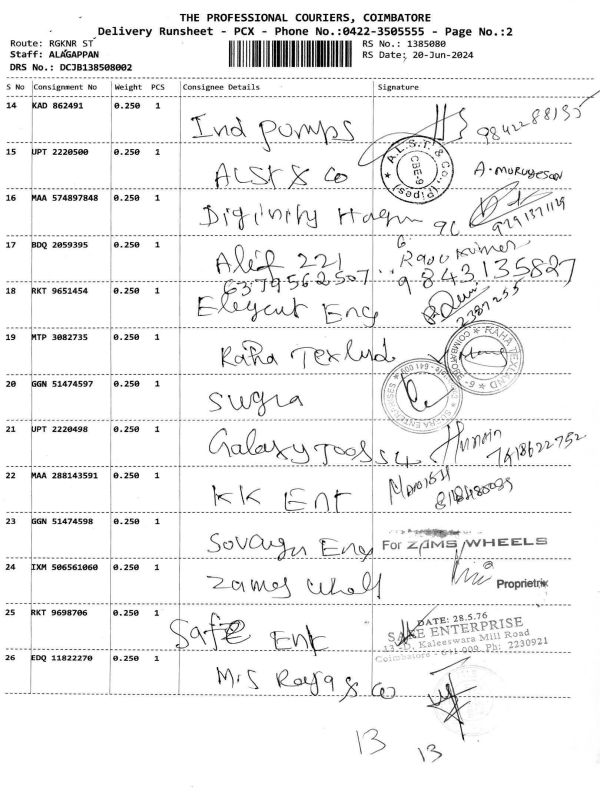 THE PROFESSIONAL COURIERS, COIMBATORE
Delivery Runsheet - PCX - Phone No.:0422-3505555 - Page No.:2
Route: RGKNR ST
RS No.: 1385080
Staff: ALAGAPPAN
RS Date: 20-Jun-2024
DRS No.: DCJB138508002
S No Consignment No Weight PCS Consignee Details Signature
14 KAD 862491 0.250 1 Ind Pumps 9842288135
15 UPT 2220500 0.250 1 ALST & Co
A.L.S.T. & Co., (Pipes) CBE-9
A. Murugesan
16 MAA 574897848 0.250 1
17 BDQ 2059395 0.250 1 Alif 221
6379562507 9843135827
18 RKT 9651454 0.250 1 Elegent Eng
2387255
19 MTP 3082735 0.250 1 Raha Texlnd
RAHA TEXLAND COIMBATORE
20 GGN 51474597 0.250 1 Sugra
21 UPT 2220498 0.250 1 Galaxy Tools 54 7418622752
22 MAA 288143591 0.250 1 KK Ent
23 GGN 51474598 0.250 1 Eng
For ZAMS WHEELS
24 IXM 506561060 0.250 1 Zames Wheel
Proprietrix
25 RKT 9698706 0.250 1 Safe Ent
DATE: 28.5.76
ENTERPRISE
Kaleeswara Mill Road
Coimbatore - 641 009. Ph: 2230921
26 EDQ 11822270 0.250 1 M.S Raja & Co
13
13